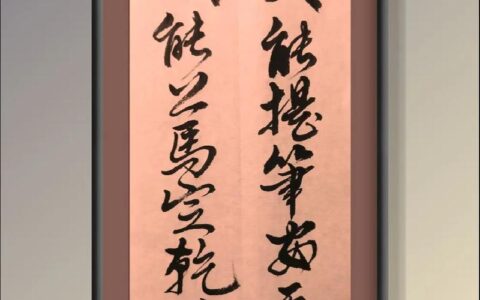 能提筆安
能上馬定乾